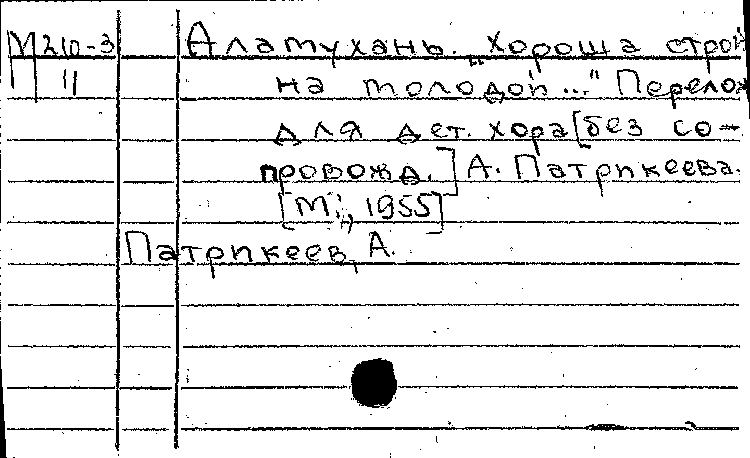 М210-3 Алатухань. "Хороша строй
11 на молодой..." Перелож
для дет. хора [без со-
провожд.] А. Патрикеева.
[М., 1955]
Патрикеев, А.